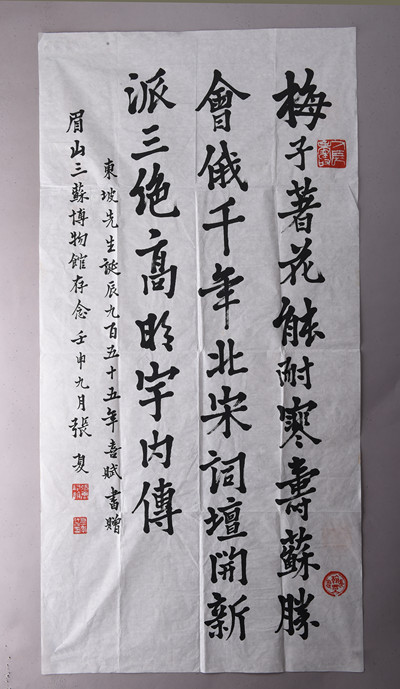 梅子著花能耐寒壽蘇勝
會俄千年北宋詞壇開新
派三絕高明宇内傳
東坡先生誕辰九百五十五年喜賦書贈
眉山三蘇博物館存念 壬申九月 張夏